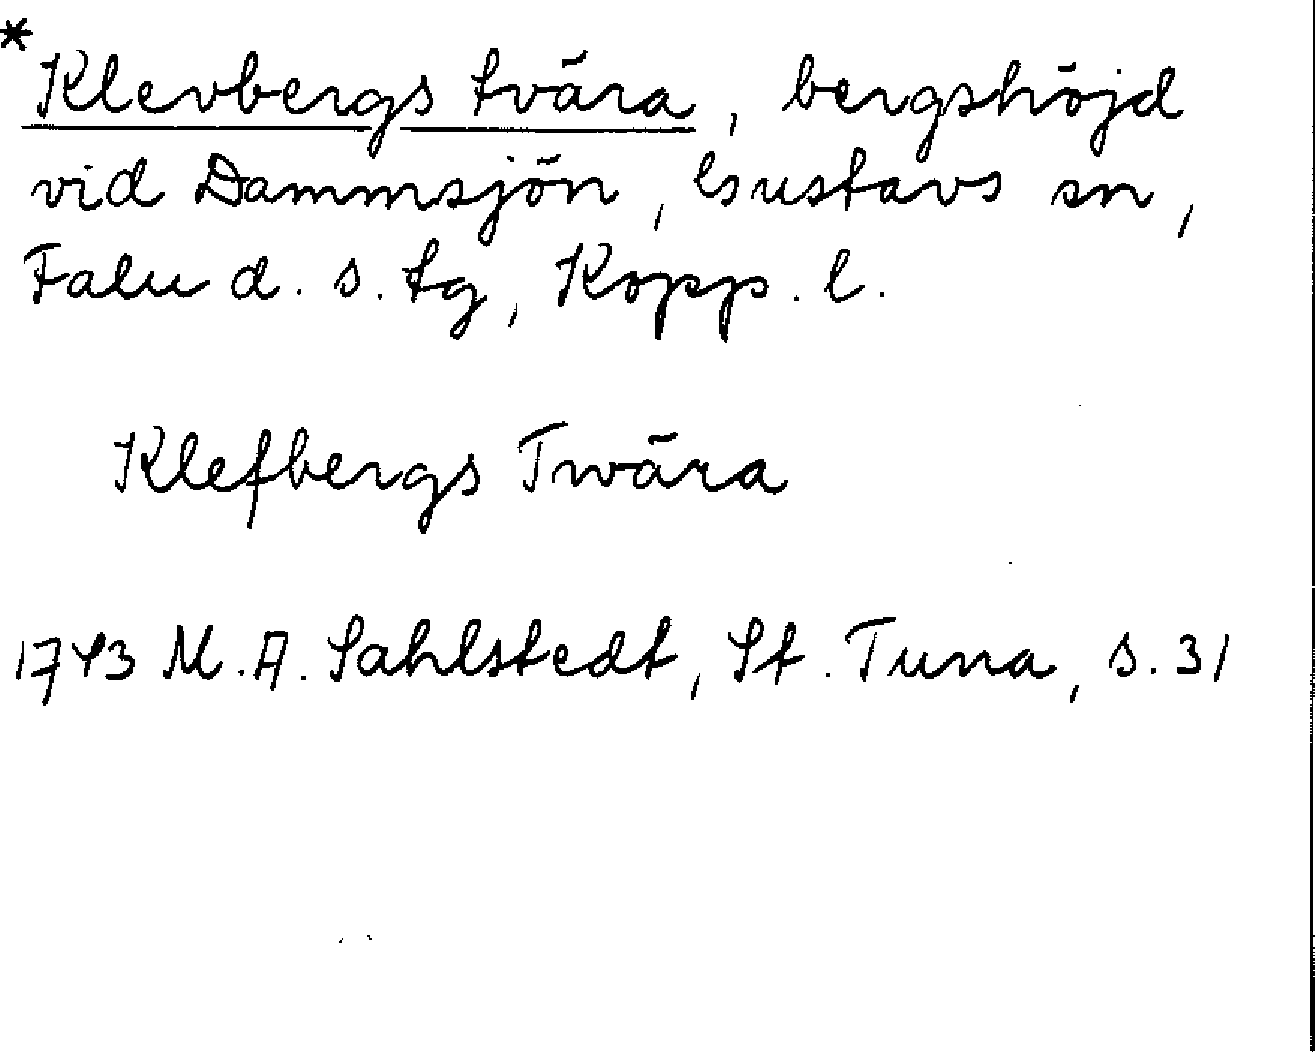 *
Klevbergs tvära, bergshöjd
vid Dammsjön, Gustavs sn,
Falu d. s. tg, Kopp. l.
Klefbergs Twära
1743 M. A. Sahlstedt, St. Tuna, s. 31